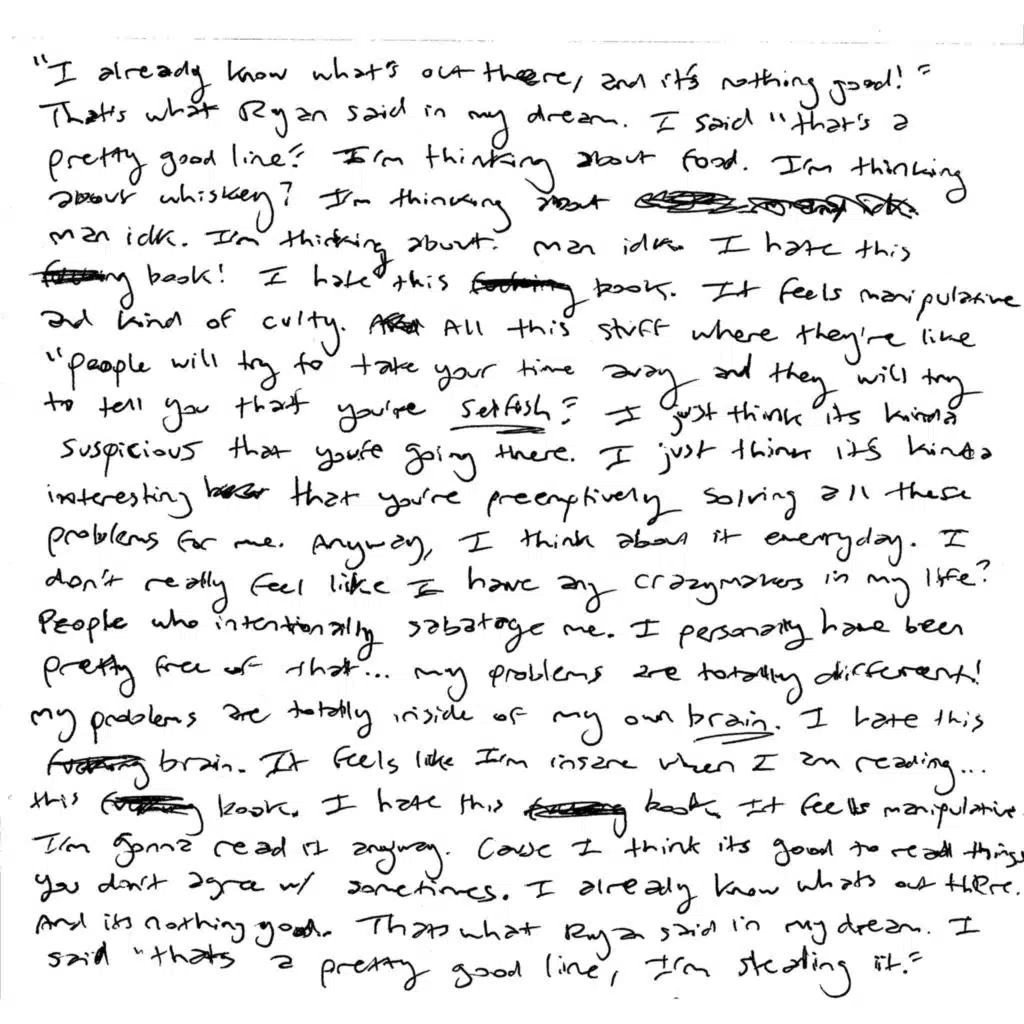 "I already know what's out there, and it's nothing good!"
That's what Ryan said in my dream. I said "that's a
pretty good line". I'm thinking about food. I'm thinking
about whiskey? I'm thinking about
man idk. I'm thinking about. man idk. I hate this
fucking book! I hate this fucking book. It feels manipulative
and kind of culty. All this stuff where they're like
"people will try to take your time away and they will try
to tell you that you're selfish". I just think its kinda
suspicious that you're going there. I just think it's kinda
interesting that you're preemptively solving all these
problems for me. Anyway, I think about it everyday. I
don't really feel like I have any crazymakers in my life?
People who intentionally sabatage me. I personally have been
pretty free of that... my problems are totally different!
my problems are totally inside of my own brain. I hate this
fucking brain. It feels like I'm insane when I am reading...
this fucking book. I hate this fucking book. It feels manipulative.
I'm gonna read it anyway. Cause I think its good to read things
you don't agree w/ sometimes. I already know whats out there.
And its nothing good. Thats what Ryan said in my dream. I
said "thats a pretty good line, I'm stealing it."